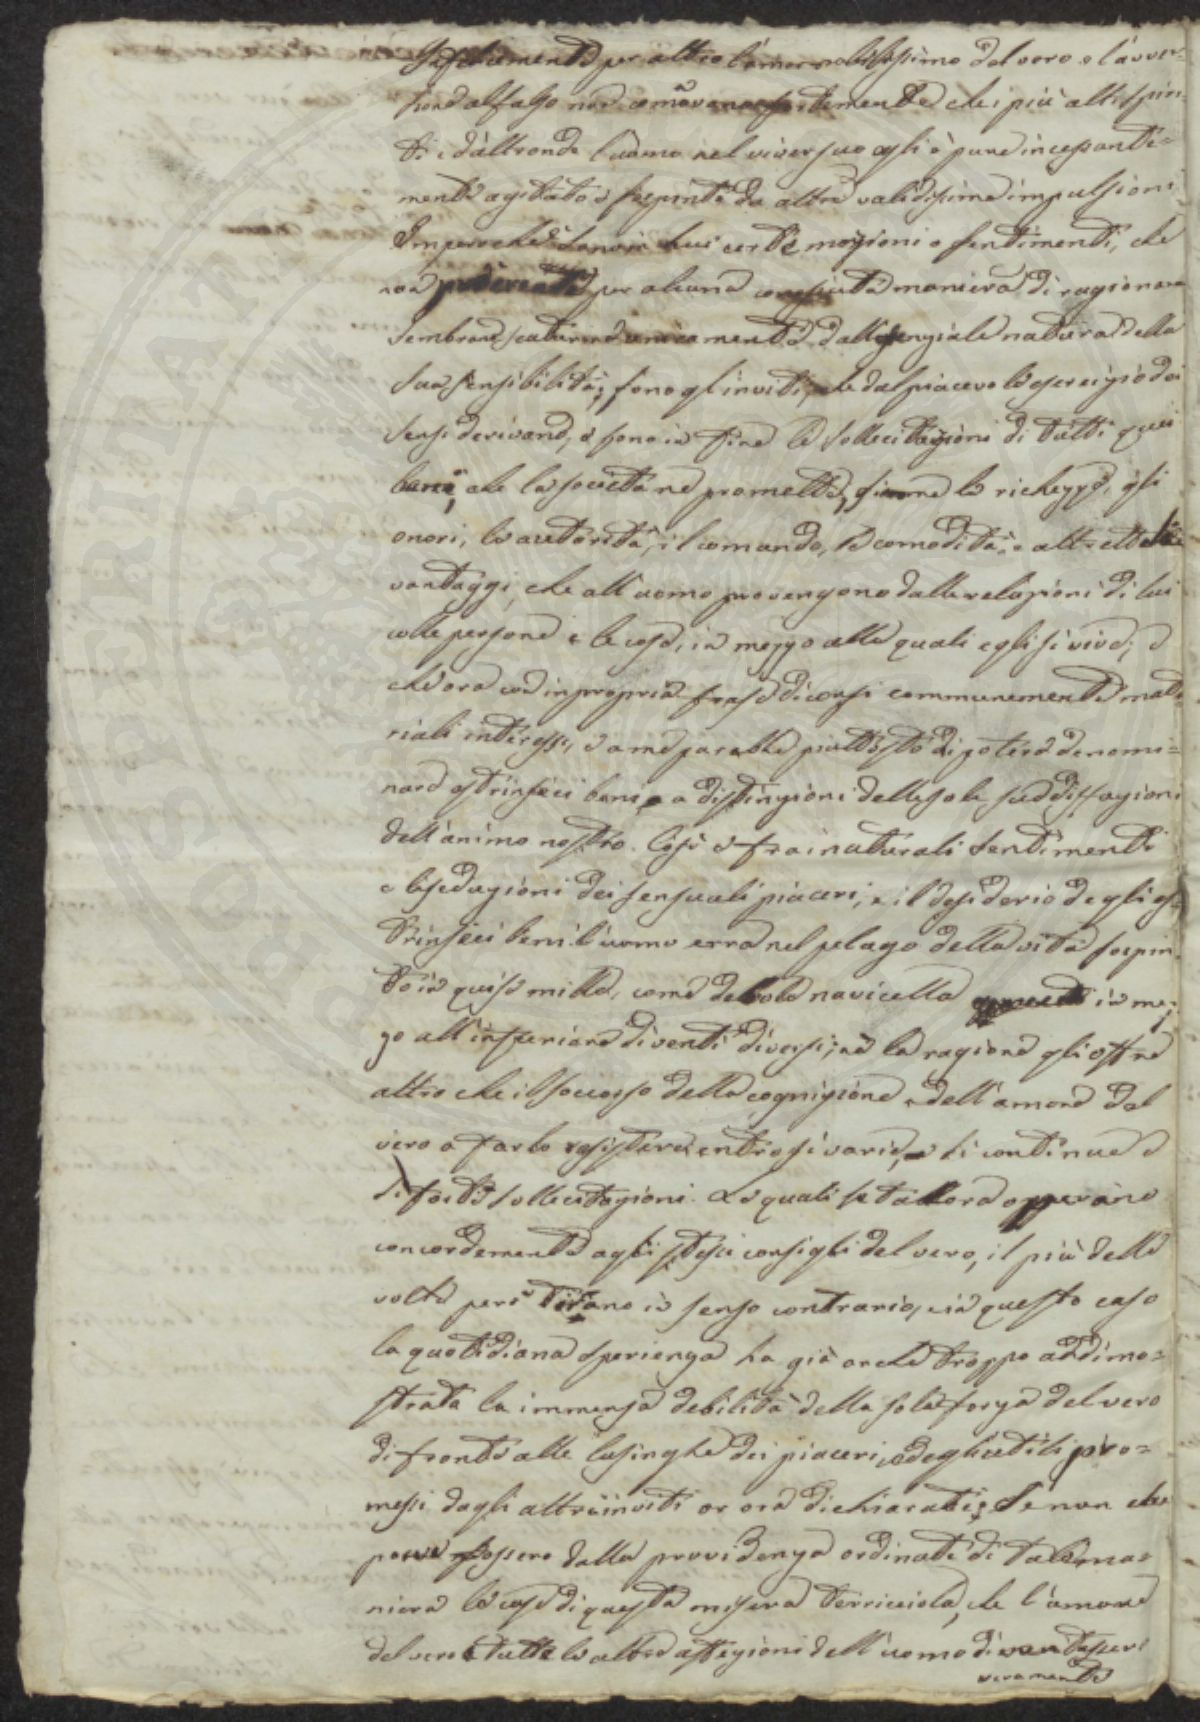 per altro l'amor nobilissimo del vero e l'avver-
sione al falso non commovono fortemente che i più alti spiri-
ti; d'altronde l'uomo nel viver suo egli è pure incessante-
mente agitato e sospinto da altre validissime impulsioni
Imperochè sono in lui certe mozioni e sentimenti, che
non per alcuna conosciuta maniera di ragionare
sembrano scaturire unicamente dall'essenziale natura della
sua sensibilità; sono gl'inviti, che dal piacevole esercizio dei
sensi derivano, e sono in fine le sollecitazioni di tutti quei
beni, che la società ne promette, siccome le ricchezze, gli
onori, le autorità, il comando, le comodità, e altrettali
vantaggi, che all'uomo provengono dalle relazioni di lui
colle persone e le cose, in mezzo alle quali egli si vive; e
che ora con impropria frase diconsi communemente mate-
riali interessi, e a me parebbe piuttosto di potere denomi-
nare estrinseci beni, a distinzione delle sole soddisfazioni
dell'animo nostro. Così è fra i naturali sentimenti
e le seduzioni dei sensuali piaceri, e il desiderio degli es-
trinseci beni l'uomo erra nel pelago della vita sospin-
to in guise mille, come debole navicella in mez-
zo all'infuriare di venti diversi; nè la ragione gli offre
altro che il soccorso della cognizione e dell'amore del
vero a farlo resistere entro sì varie, e sì continue e
sì forti sollecitazioni. Le quali se tallora opperano
concordemente agli stessi consigli del vero, il più delle
volte però tirano in senso contrario, e in questo caso
la quotidiana sperienza ha già anche troppo addimo-
strata la immensa debilità della sola forza del vero
di fronte alle lusinghe dei piaceri, e degli utili pro-
messi dagli altri inviti or ora dichiarati. Se non che
pare fossero dalla providenza ordinate di tale ma-
niera le cose di questa misera terricciola, che l'amore
del vero e tutte le altre affezioni dell'uomo
veramente